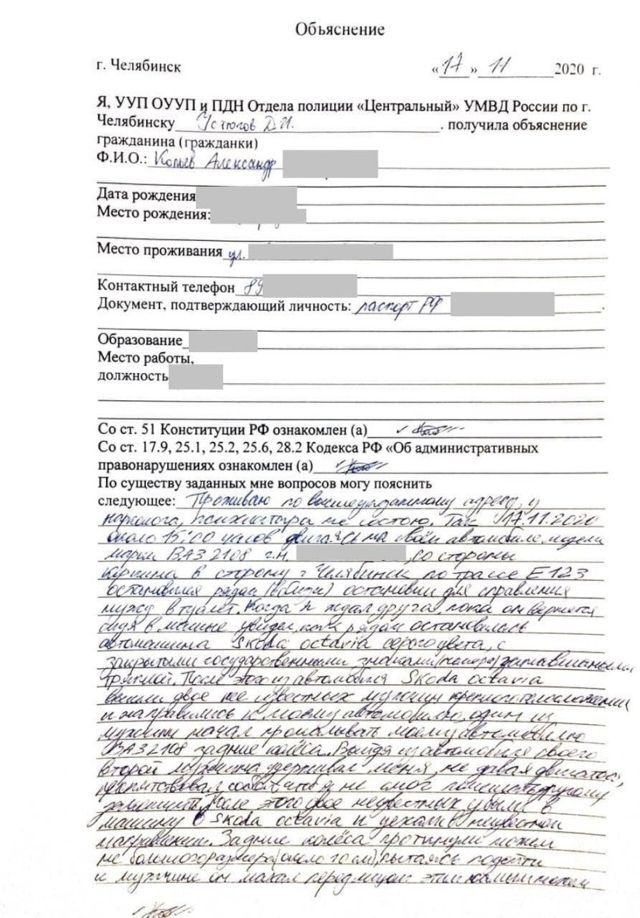 Объяснение
г. Челябинск «17» 11 2020 г.
Я, УУП ОУУП и ПДН Отдела полиции «Центральный» УМВД России по г.
Челябинску Устюгов Д.И. . получила объяснение
гражданина (гражданки)
Ф.И.О.: Александр
Дата рождения
Место рождения:
Место проживания ул.
Контактный телефон 89
Документ, подтверждающий личность: паспорт РФ
Образование
Место работы,
должность
Со ст. 51 Конституции РФ ознакомлен (а)
Со ст. 17.9, 25.1, 25.2, 25.6, 28.2 Кодекса РФ «Об административных
правонарушениях ознакомлен (а)
По существу заданных мне вопросов могу пояснить
следующее: Проживаю по вышеуказанному адресу, у
нарколога, психиатра не состою. Так 17.11.2020
около 15:00 часов двигался на своём автомобиле модели
марки ВАЗ 2108 г.н. , со стороны
в сторону г Челябинск по трассе Е123
остановился рядом остановки для справления
нужд в туалет. Когда я ждал друга, пока он вернется
сидя в машине увидел, как рядом остановилась
автомашина Skoda octavia серого цвета, с
закрытыми государственными знаками
тряпкой. После этого из автомобиля Skoda octavia
вышли двое не известных мужчин крепкого телосложения
и направились к моему автомобилю, один из
мужчин начал прокалывать моему автомобилю
ВАЗ 2108 задние колёса. Выйдя из автомобиля своего
второй мужчина удерживал меня, не давая двигаться,
препятствовал и не смог помешать другому
После этого двое неизвестных в
машину Skoda octavia и уехали в неизвестном
направлении. Задние колёса проткнули ножом
не большого размера (около 10 см), пытаясь подойти
к мужчине он махал перед лицом этим